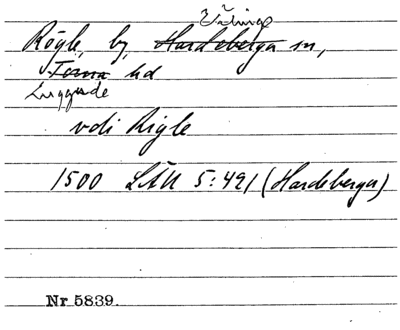 Välinge
Rögle, by, Hardeberga sn,
Torna hd
Luggude
vdi Rigle
1500 LÄU 5:491 (Hardeberga)
Nr 5839.